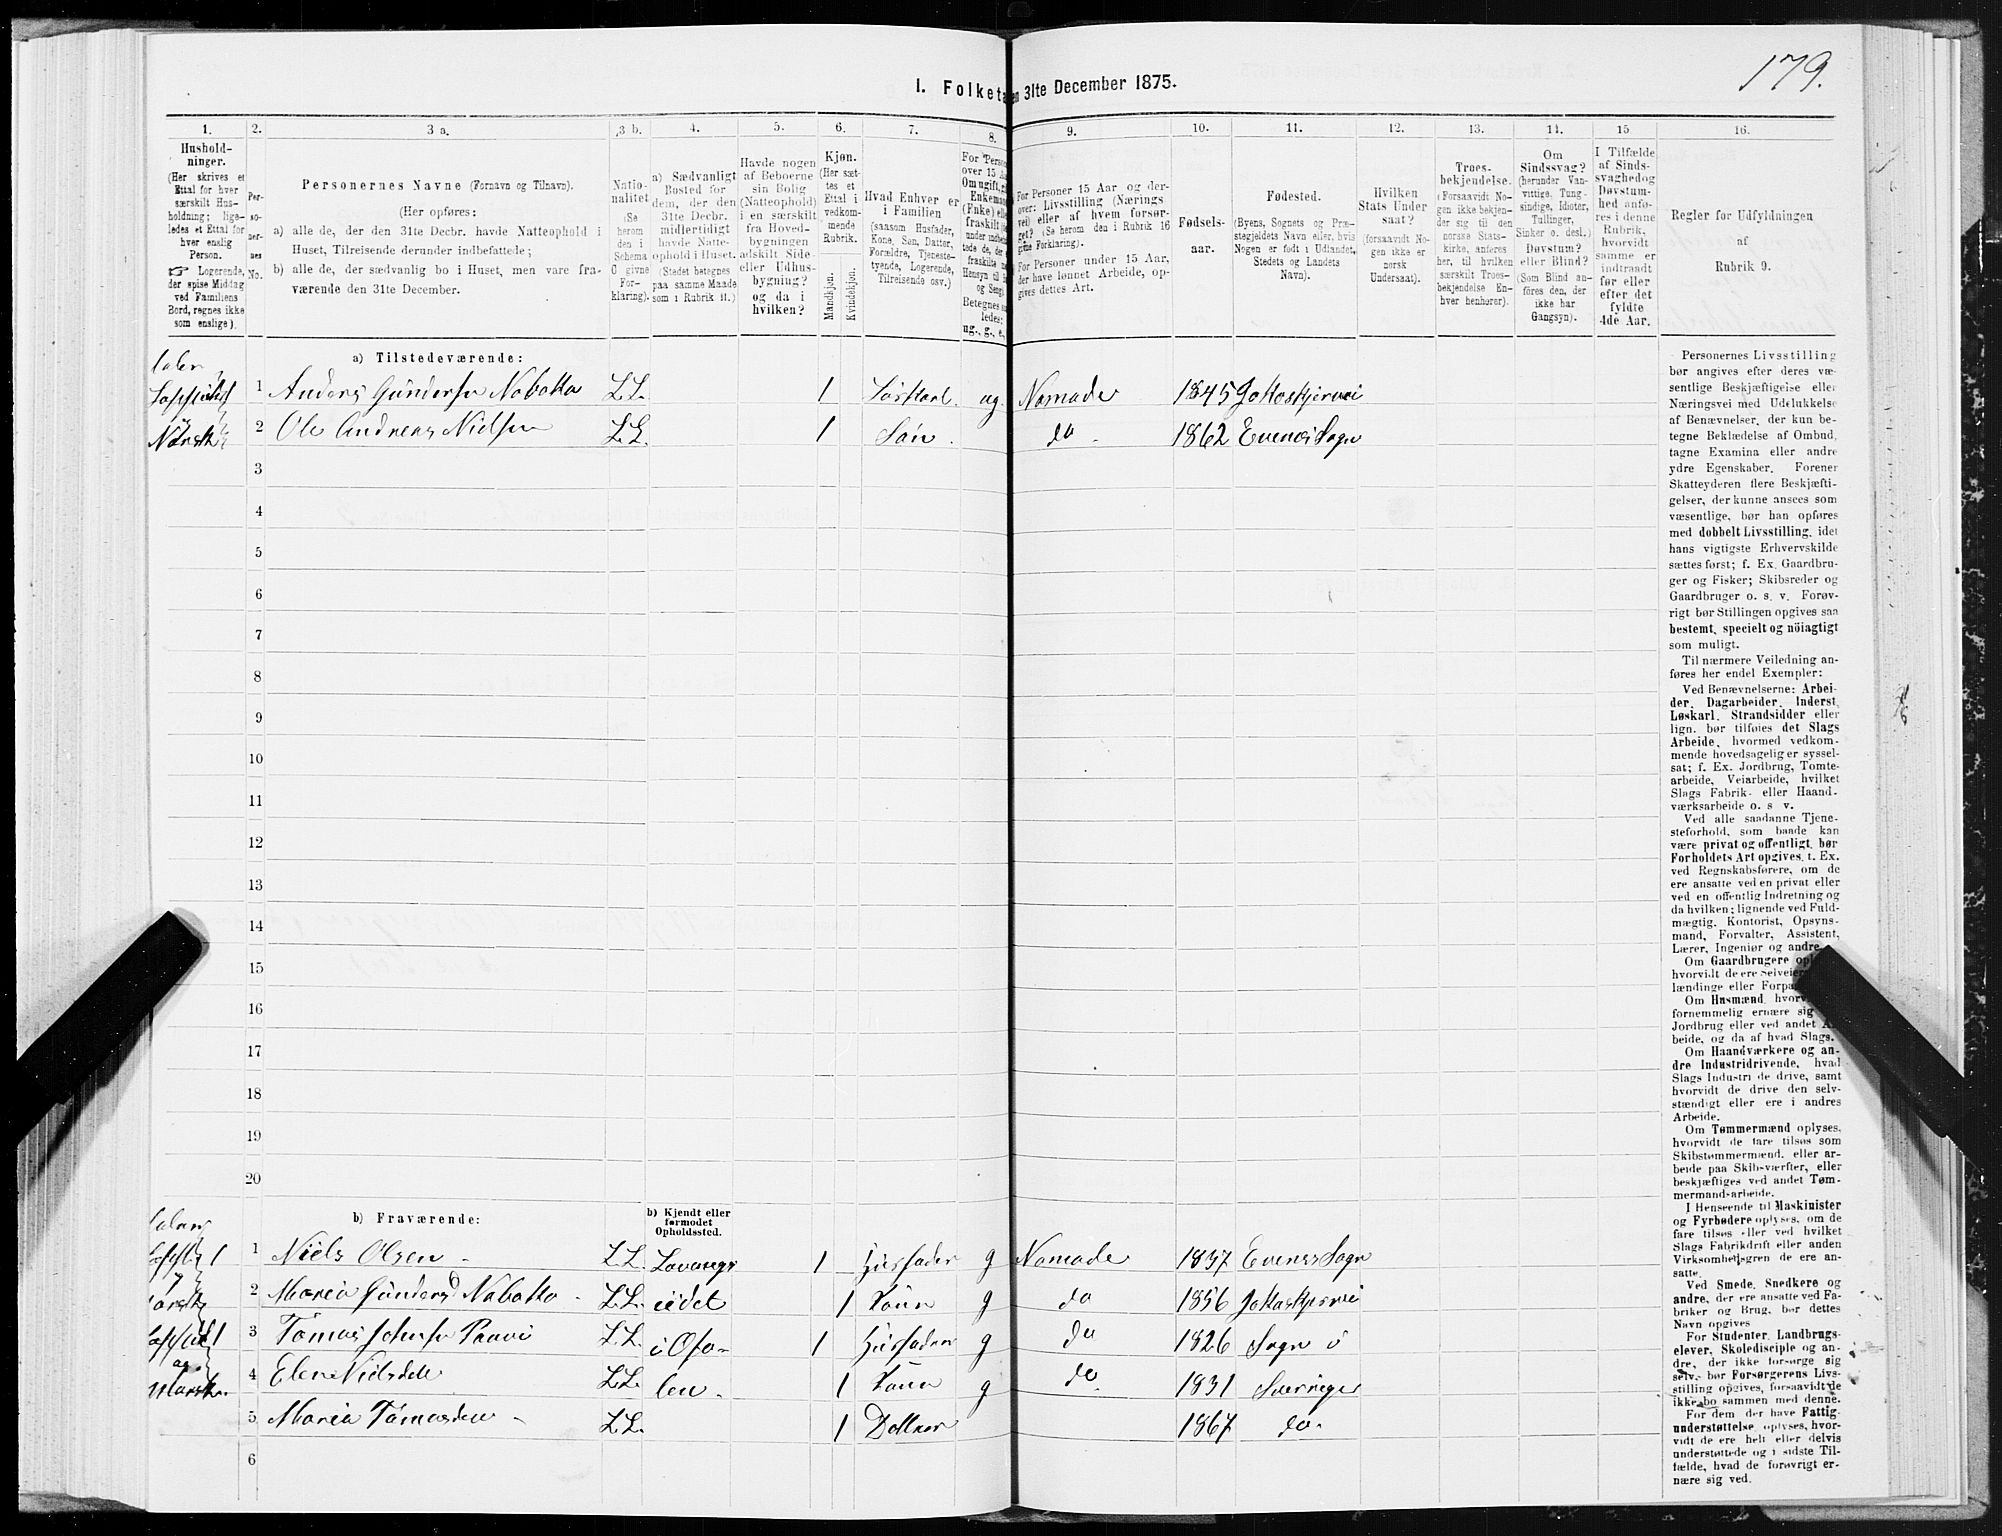 179.
I. Folketa en 31te December 1875.
1. 2. 3 a. 3 b. 4. 5. 6. 7. 8. 9. 10. 11. 12. 13. 14. 15 16.
Hushold-
ninger.
(Her skrives et
Ettal for hver
særskilt Hus-
holdning; lige-
ledes et Ettal for
hver enslig
Person.
☞ Logerende,
der spise Middag
ved Familiens
Bord, regnes ikke
som enslige).
Per-
so-
ner-
nes
No.
Personernes Navne (Fornavn og Tilnavn).
(Her opføres:
a) alle de, der den 31te Decbr. havde Natteophold i
Huset, Tilreisende derunder indbefattede;
b) alle de, der sædvanlig bo i Huset, men vare fra-
værende den 31te December.
Natio-
nalitet
(Se
herom
den i
Schema
O givne
For-
klaring).
a) Sædvanligt
Bosted for
dem, der den
31te Decbr.
midlertidigt
havde Natte-
ophold i Huset.
(Stedet betegnes
paa samme Maade
som i Rubrik 11.)
Havde nogen
af Beboerne
sin Bolig
(Natteophold)
i en særskilt
fra Hoved-
bygningen
adskilt Side-
eller Udhus-
bygning?
og da i
hvilken?
Kjøn.
(Her sæt-
tes et
Ettal i
vedkom-
mende
Rubrik.
Mandkjøn.
Kvindekjøn.
Hvad Enhver er
i Familien
(saasom Husfader,
Kone, Søn, Datter,
Forældre, Tjeneste-
tyende, Logerende,
Tilreisende osv.)
For Perso
over 15 A
Om ugift, gi
Enkeman
(Enke) elle
fraskilt
under indbefat-
tede de, de
fraskilte
Hensyn til
og Seng
Betegnes s
ledes:
ug., g., e.,
For Personer 15 Aar og der-
over: Livsstilling (Nærings-
vei) eller af hvem forsør-
get? (Se herom den i Rubrik 16
givne Forklaring).
For Personer under 15 Aar,
der have lønnet Arbeide, op-
gives dettes Art.
Fødsels-
aar.
Fødested.
(Byens, Sognets og Præ-
stegjeldets Navn eller, hvis
Nogen er født i Udlandet,
Stedets og Landets
Navn).
Hvilken
Stats Under
saat?
(forsaavidt No-
gen ikke er
norsk
Undersaat).
Troes-
bekjendelse.
(Forsaavidt No-
gen ikke bekjen-
der sig til den
norske Stats-
kirke, anføres
her, til hvilken
særskilt Troes-
bekjendelse En-
hver henhører).
Om
Sindssvag?
(herunder Van-
vittige, Tung-
sindige, Idioter,
Tullinger,
Sinker o. desl.)
Døvstum?
eller Blind?
(Som Blind an-
føres den, der
ikke har
Gangsyn).
I Tilfælde
af Sinds-
svaghed og
Døvstum-
hed anfø-
res i denne
Rubrik,
hvorvidt
samme er
indtraadt
før eller
efter det
fyldte
4de Aar.
Regler for Udfyldningen
af
Rubrik 9.
a) Tilstedeværende:
1 Anders Gundersen Nabakka L.L. 1 Løskarl. ug Nomade 1845 Jokkaskjervei
Norsk 2 Ole Andreas Nielsen L.L. 1 Søn. do - 1862 Evenæs Sogn
3
4
5
6
7
8
9
10
11
12
13
14
15
16
17
18
19
20
b) Fraværende:
b) Kjendt eller
formodet
Opholdssted.
1 1 Niels Olsen - L.L. 1 Husfader g Nomade 1837 Evenes Sogn
2 Maria Gundersd Nabakka - L.L. eidet 1 Kone g do 1856 Jokkaskjervei
1 3 Tomas Johnsen Paavi L.L. i Ofo- 1 Husfader g do 1826 Sogn i
4 Elen Nielsdtr L.L. ten. 1 Kone g do 1831 Sverrige
5 Maria Tomasdtr - L.L. 1 Datter 1867 do.
6
Personernes Livsstilling
bør angives efter deres væ-
sentlige Beskjæftigelse eller
Næringsvei med Udelukkelse
af Benævnelser, der kun be-
tegne Beklædelse af Ombud,
tagne Examina eller andre
ydre Egenskaber. Forener
Skatteyderen flere Beskjæfti-
gelser, der kunne ansees som
væsentlige, bør han opføres
med dobbelt Livsstilling, idet
hans vigtigste Erhvervskilde
sættes først; f. Ex. Gaardbru-
ger og Fisker; Skibsreder og
Gaardbruger o. s. v. Forøv-
rigt bør Stillingen opgives saa
bestemt, specielt og nöiagtigt
som muligt.
Til nærmere Veiledning an-
føres her endel Exempler:
Ved Benævnelserne: Arbei-
der, Dagarbeider, Inderst,
Løskarl, Strandsidder eller
lign. bør tilføies det Slags
Arbeide, hvormed vedkom-
mende hovedsagelig er syssel-
sat; f. Ex. Jordbrug, Tomte-
arbeide, Veiarbeide, hvilket
Slags Fabrik- eller Haand-
værksarbeide o. s v.
Ved alle saadanne Tjene-
steforhold, som baade kan
være privat og offentligt, bør
Forholdets Art opgives, t. Ex.
ved Regnskabsførere, om de
ere ansatte ved en privat eller
ved en offentlig Indretning og
da hvilken; lignende ved Fuld-
mægtig, Kontorist, Opsyns-
mand, Forvalter, Assistent,
Lærer, Ingeniør og andre
Om Gaardbrugere op
hvorvidt de ere Selveier
lændinge eller Forpa
Om Husmænd, hvor
fornemmelig ernære sig
Jordbrug eller ved andet A
beide, og da af hvad Slags.
Om Haandværkere og an-
dre Industridrivende, hvad
Slags Industri de drive, samt
hvorvidt de drive den selv-
stændigt eller ere i andres
Arbeide.
Om Tømmermænd oplyses,
hvorvidt de fare tilsøs som
Skibstømmermænd, eller ar-
beide paa Skibsværfter, eller
beskjæftiges ved andet Tøm-
mermandsarbeide.
I Henseende til Maskinister
og Fyrbødere oplyses, om de
fare tilsøs eller ved hvilket
Slags Fabrikdrift eller anden
Virksomhedsgren de ere an-
satte.
Ved Smede, Snedkere og
andre, der ere ansatte ved Fa-
briker og Brug, bør dettes
Navn opgives
For Studenter, Landbrugs-
elever, Skoledisciple og an-
dre, der ikke forsørge sig
selv, bør Forsørgerens Livs-
stilling opgives, forsaavidt de
ikke bo sammen med denne.
For dem, der have Fattig-
understøttelse, oplyses, hvor-
vidt de ere helt eller delvis
understøttede og i sidste Til-
fælde, hvad de forøvrigt er-
nære sig ved.